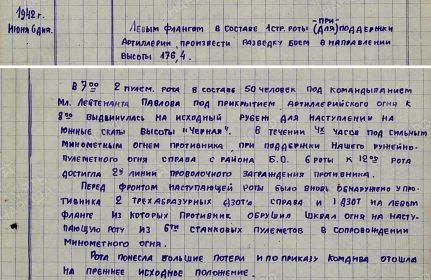 1942 г.
Июня 6 дня.
- при -
Левым флангом в составе 1 стр. роты (для) поддержки
Артиллерии, произвести разведку боем в направлении
высоты 176,4.
В 7⁰⁰ 2 пулем. рота в составе 50 человек под командыванием
Мл. Лейтенанта Павлова под прикрытием артиллерийского огня к
8⁰⁰ выдвинулась на исходный рубеж для наступления на
южные скаты высоты "Черная". В течении 4х часов под сильным
минометным огнем противника, при поддержки нашего ружейно-
пулеметного огня справа с района Б.О. 6 роты к 12⁰⁰ рота
достигла 2й линии проволочного заграждения противника.
Перед фронтом наступающей роты было вновь обнаружено у про-
тивника 2 трехабразурных дзота справа и 1 дзот на левом
фланге из которых противник обрушил шквал огня на насту-
пающую роту из 6ти станковых пулеметов в сопровождении
минометного огня.
Рота понесла большие потери и по приказу комдива отошла
на прежнее исходное положение.